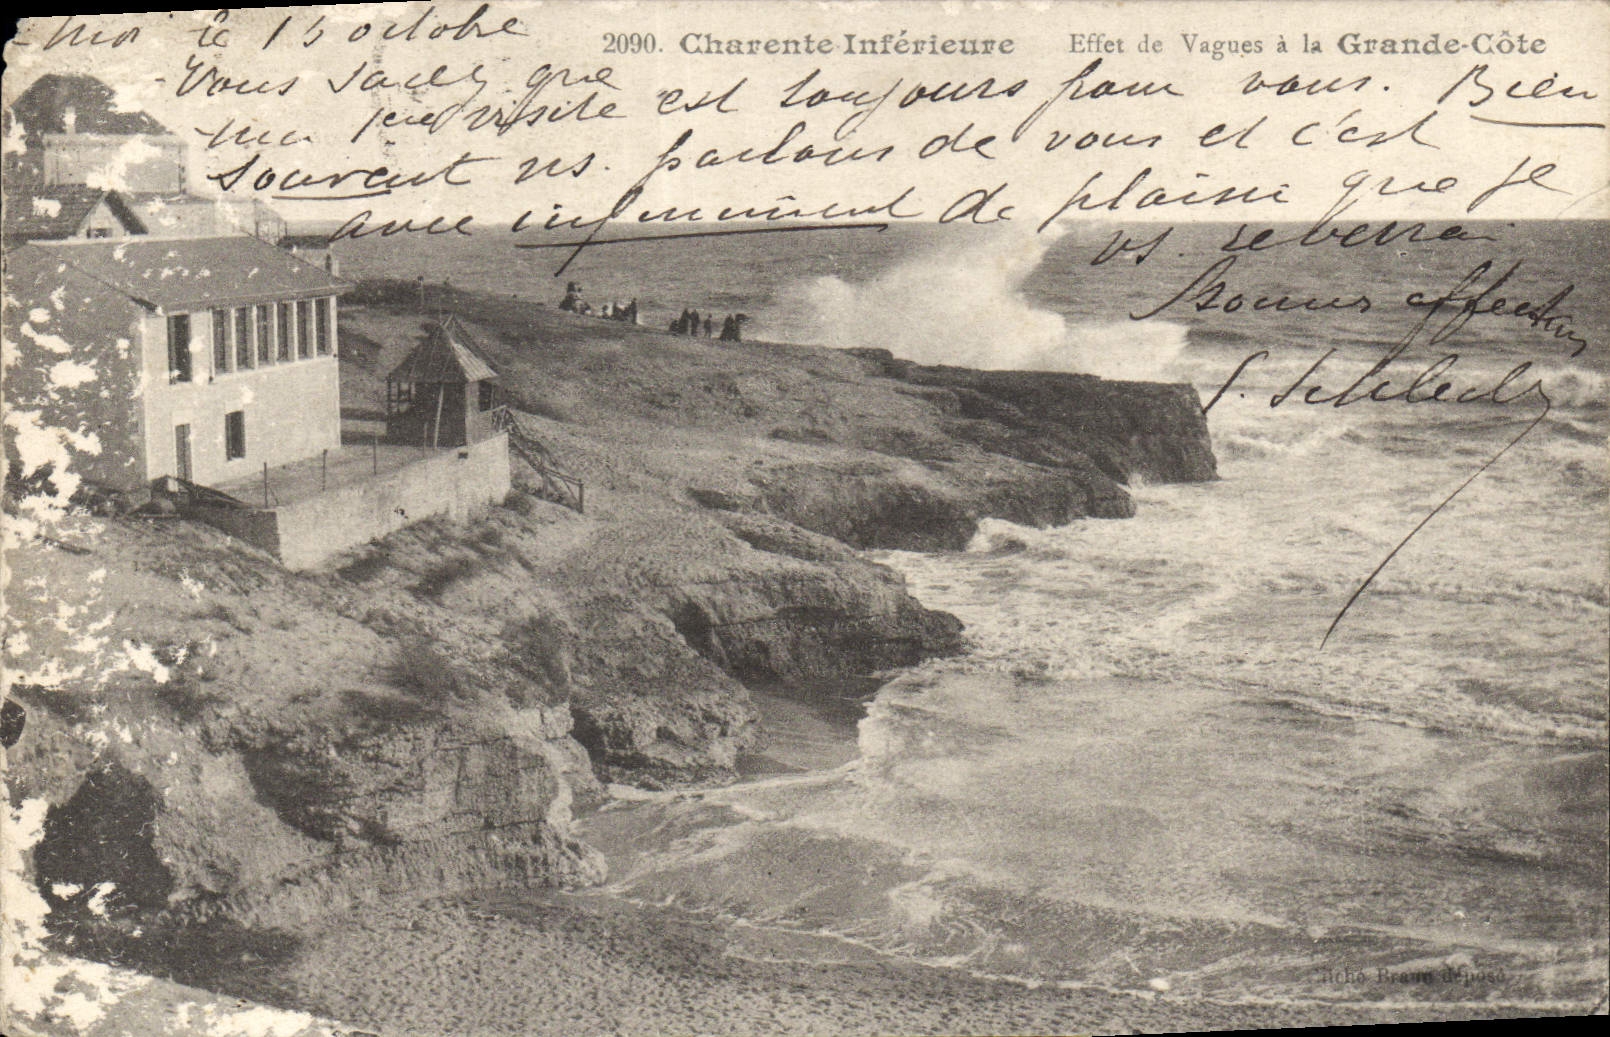 le 15 octobre
2090. Charente-Inférieure Effet de Vagues à la Grande-Côte
Vous savez que
ma 1ère visite est toujours pour vous. Bien
souvent ns. parlons de vous et c'est
avec infiniment de plaisir que je
vs. reverrai
Bonnes affections
Cliché Braun déposé